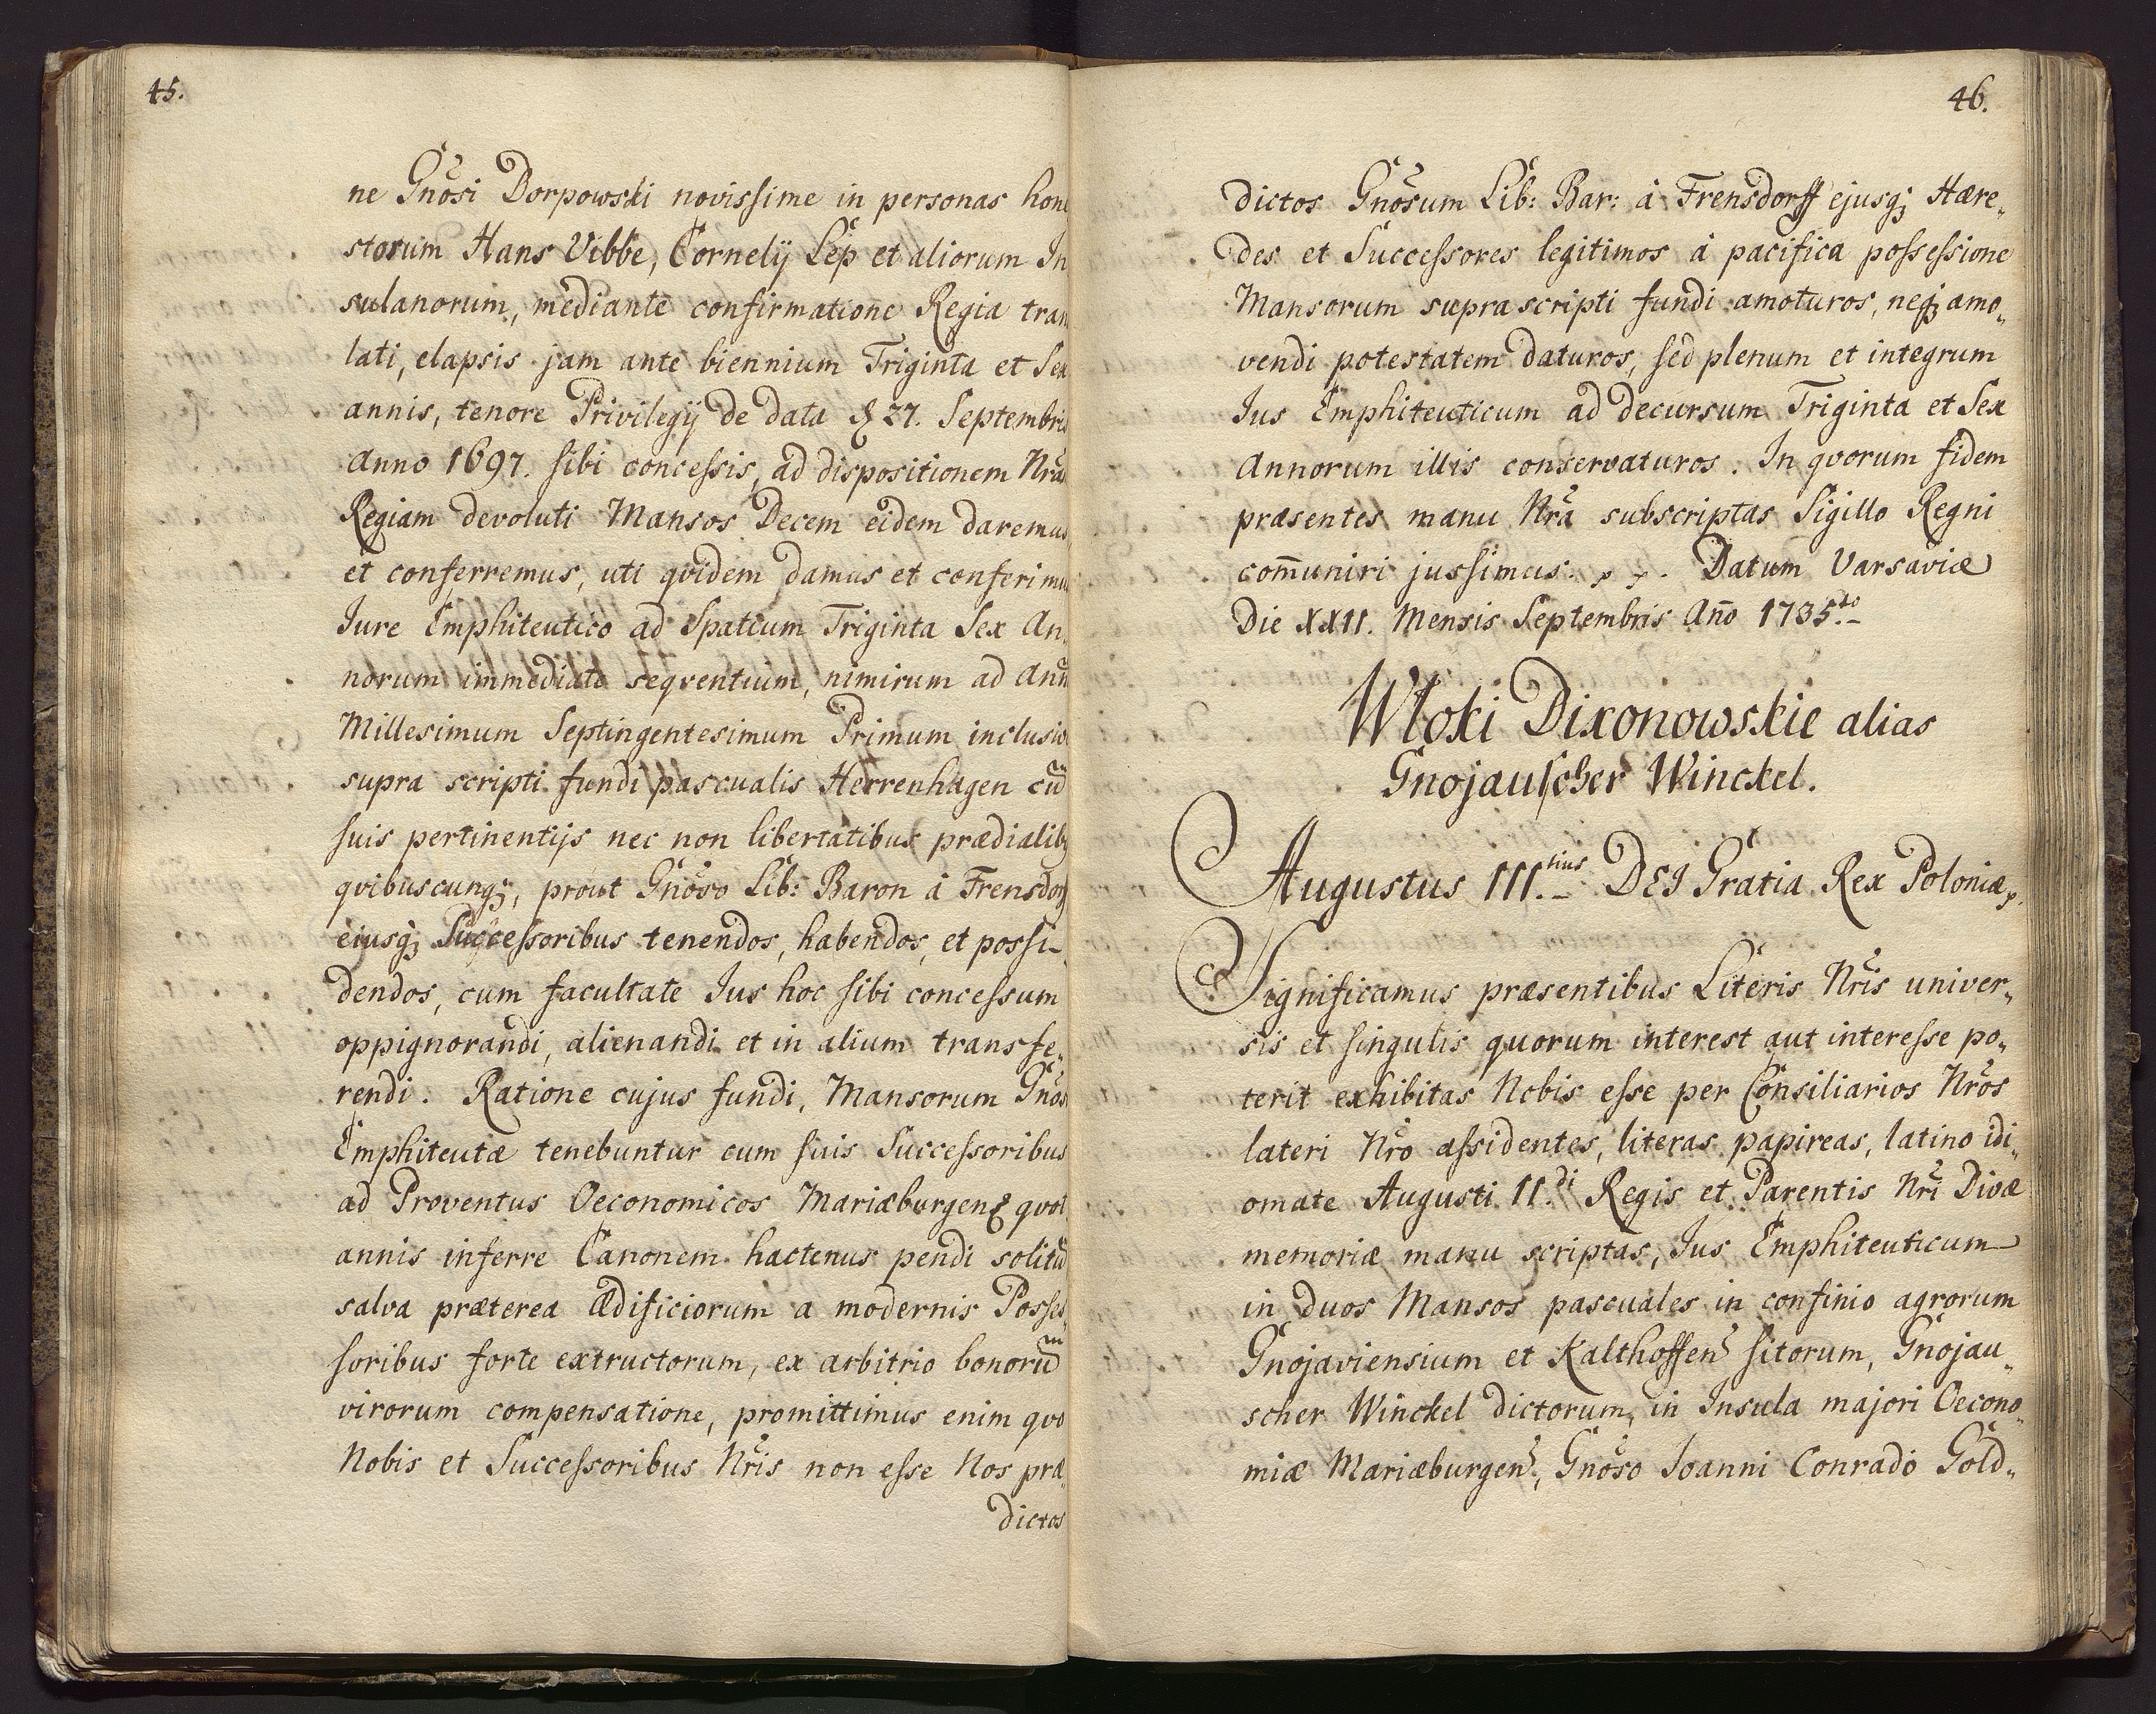 45.
ne Gnõsi Dorpowski novissime in personas hone
storum Hans Vibbe, Cornelij Lep et aliorum In
sulanorum, mediante confirmatione Regia trans
lati, elapsis jam ante biennium Triginta et Sex
annis, tenore Privilegij de data 27. Septembris
Anno 1697. sibi concessis, ad dispositionem Nrãm
Regiam devoluti Mansos Decem eidem daremus,
et conferremus, uti qvidem damus et conferimus
Jure Emphiteutico ad Spatium Triginta Sex An,
norum immediate seqventium, nimirum ad Annũ
Millesimum Septingentesimum Primum inclusive
supra scripti fundi pascualis Herrenhagen cũ
suis pertinentijs nec non libertatibus prædialibq
qvibuscunqꝫ, prout Gnõso Lib: Baron â Frensdorff
eiusqꝫ Successoribus tenendos, habendos, et possi-
dendos, cum facultate Jus hoc sibi concessum
oppignorandi, alienandi et in alium transfe„
rendi. Ratione cujus fundi, Mansorum Gnõs
Emphiteutæ tenebuntur cum suis Successoribus
ad Proventus Oeconomicos Mariæburgenẽ qvot
annis inferre Canonem hactenus pendi solitũ
salva præterea Ædificiorum a modernis Posses„
soribus forte extructorum, ex arbitrio bonorũ
virorum compensatione, promittimus enim qvo
Nobis et Successoribus Nrĩs non esse Nos præ„
dictos
46.
dictos Gnõsum Lib: Bar: â Frensdorff ejusqꝫ Hære„
des et Successores legitimos â pacifica possessione
Mansorum supra scripti fundi amoturos, neqꝫ amo„
vendi potestatem daturos, sed plenum et integrum
Jus Emphiteuticum ad decursum Triginta et Sex
Annorum illis conservaturos. In qvorum fidem
præsentes manu Nrã subscriptas Sigillo Regni
com̃uniri jussimus. Datum Varsaviæ
Die XXII. Mensis Septembris Añо 1735.to
Włoki Dixonowskie alias
Gnojauscher Winckel.
Augustus III.tius DEI Gratia Rex Poloniæ
Significamus præsentibus Literis Nrĩs univer„
sis et singulis quorum interest aut interesse po„
terit exhibitas Nobis esse per Consiliarios Nrõs
lateri Nrõ assidentes, literas papireas, latino idi„
omate Augusti II.di Regis et Parentis Nrĩ Divæ
memoriæ manu scriptas, Jus Emphiteuticum
in duos Mansos pascuales in confinio agrorum
Gnojaviensium et Kalthoffeñ sitorum, Gnojau„
scher Winckel dictorum, in Insula majori Oecono„
miæ Mariæburgeñ, Gnõso Joanni Conrado Gold„